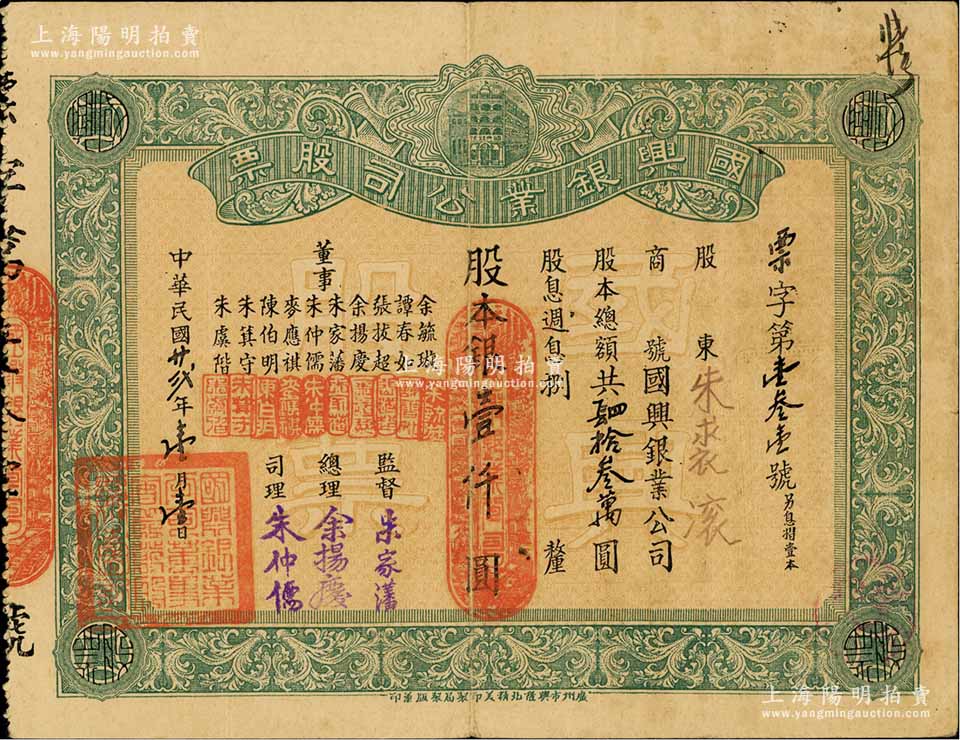 上海陽明拍賣
www.yangmingauction.com
國興銀業公司股票
票字第壹叁壹號 另息摺壹本
股東 朱求裘
商號國興銀業公司
股本總額共肆拾叁萬圓
股息週息捌釐
股本銀壹仟圓
董事
余毓璣
譚春如
張拔超
余揚慶
朱家藩
朱仲儒
麥應祺
陳伯明
朱箕守
朱虞階
監督 朱家藩
總理 余揚慶
司理 朱仲儒
中華民國廿貳年壹月壹日
上海陽明拍賣
www.yangmingauction.com